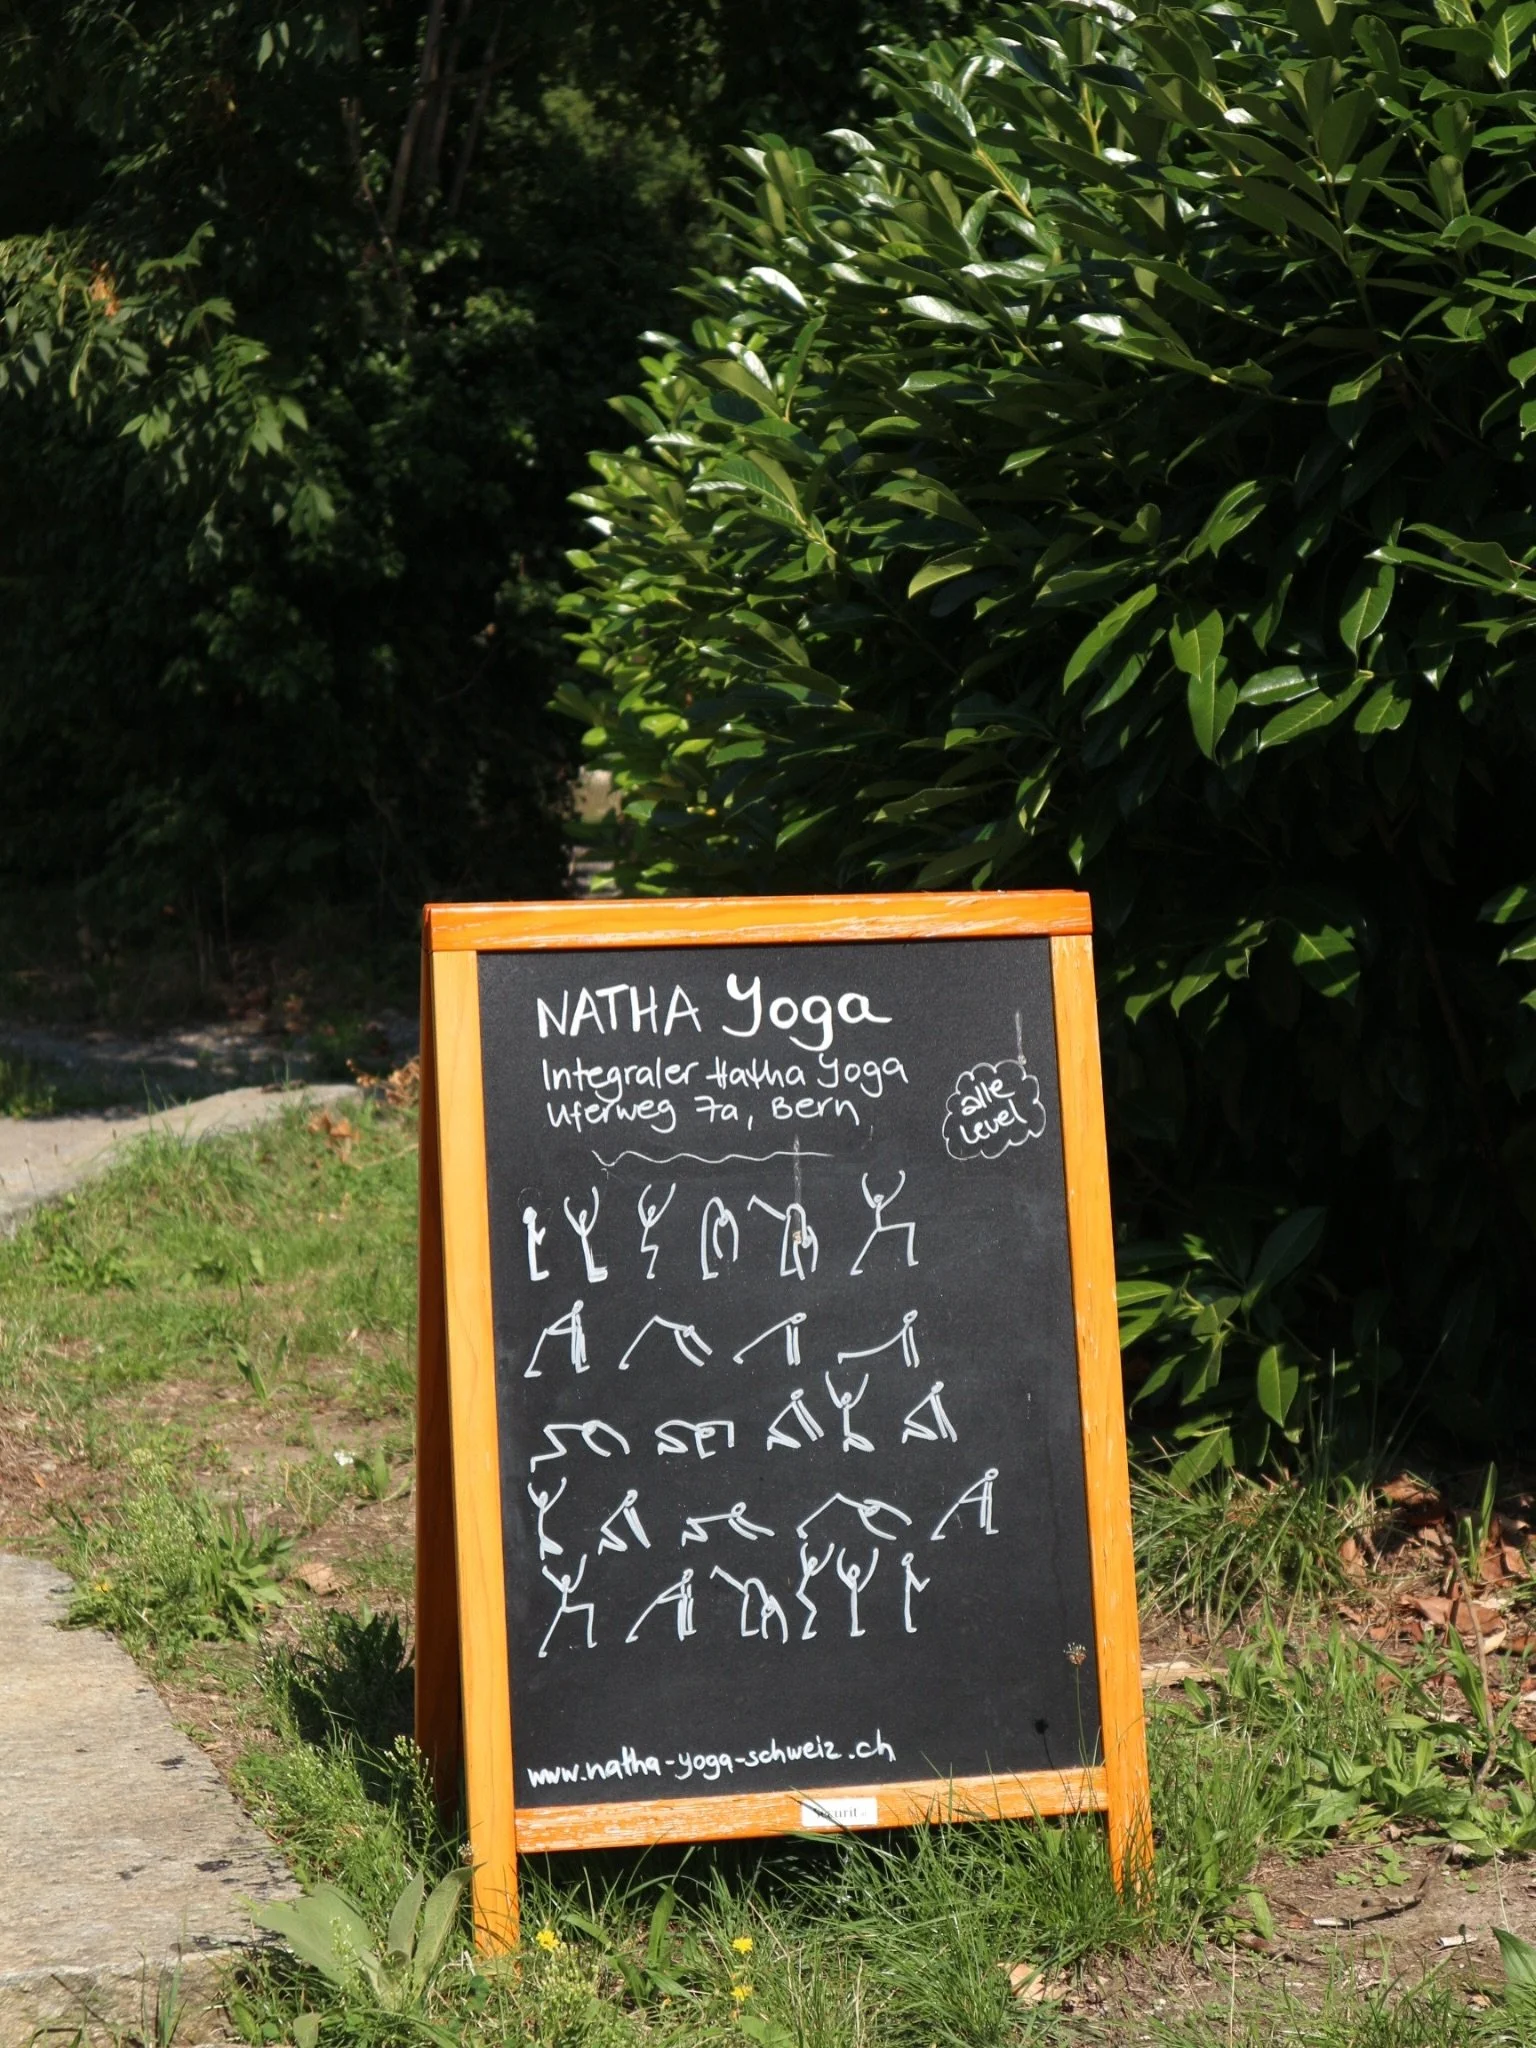 NATHA Yoga
Integraler Hatha Yoga
Uferweg 7a, Bern
alle
Level
www.natha-yoga-schweiz.ch